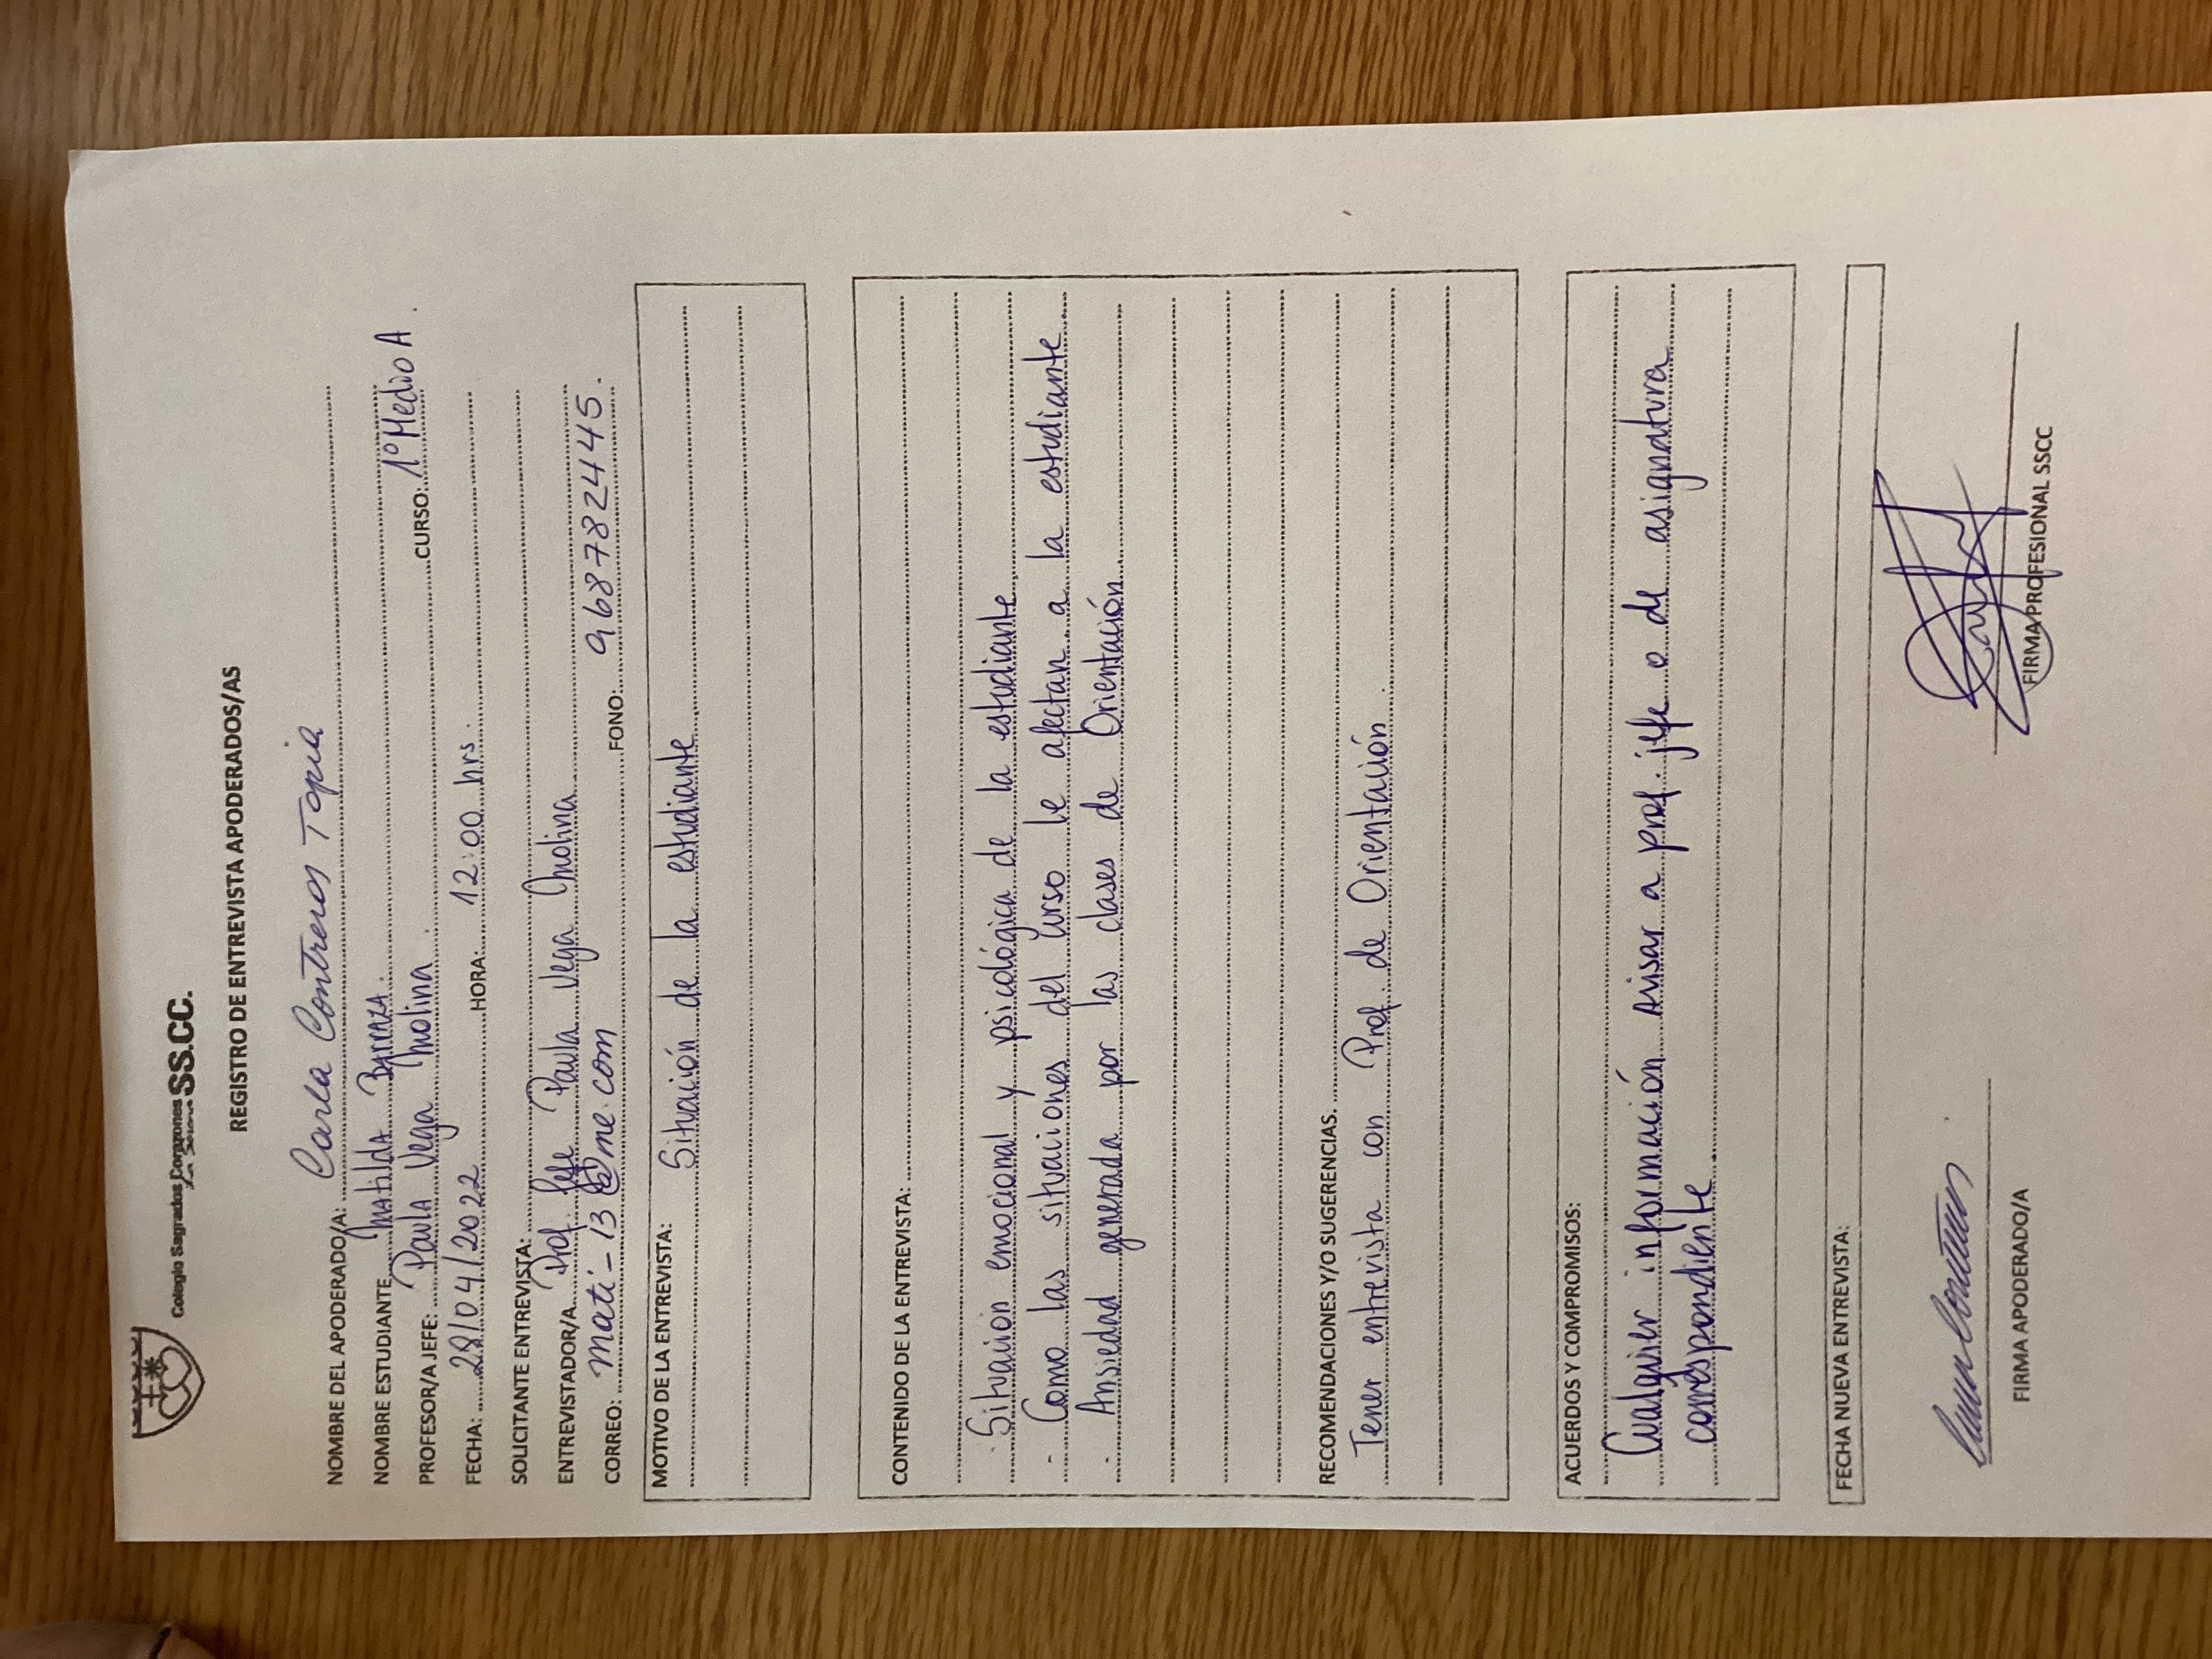 Colegio Sagrados Corazones SS.CC.
REGISTRO DE ENTREVISTA APODERADOS/AS
NOMBRE DEL APODERADO/A: Carla Contreras Tapia
NOMBRE ESTUDIANTE Matilda Barraza.
PROFESOR/A JEFE: Paula Vega Molina. CURSO: 1º Medio A.
FECHA: 28/04/2022 HORA: 12:00 hrs.
SOLICITANTE ENTREVISTA:
ENTREVISTADOR/A. Prof. Jefe Paula Vega Molina
CORREO: mati-13@me.com FONO: 968782445.
MOTIVO DE LA ENTREVISTA:
Situación de la estudiante
CONTENIDO DE LA ENTREVISTA:
- Situación emocional y psicológica de la estudiante.
- Como las situaciones del curso le afectan a la estudiante
- Ansiedad generada por las clases de Orientación
RECOMENDACIONES Y/O SUGERENCIAS.
Tener entrevista con Prof. de Orientación.
ACUERDOS Y COMPROMISOS:
Cualquier información Avisar a prof. jefe o de asignatura
correspondiente
FECHA NUEVA ENTREVISTA:
FIRMA APODERADO/A
FIRMA PROFESIONAL SSCC